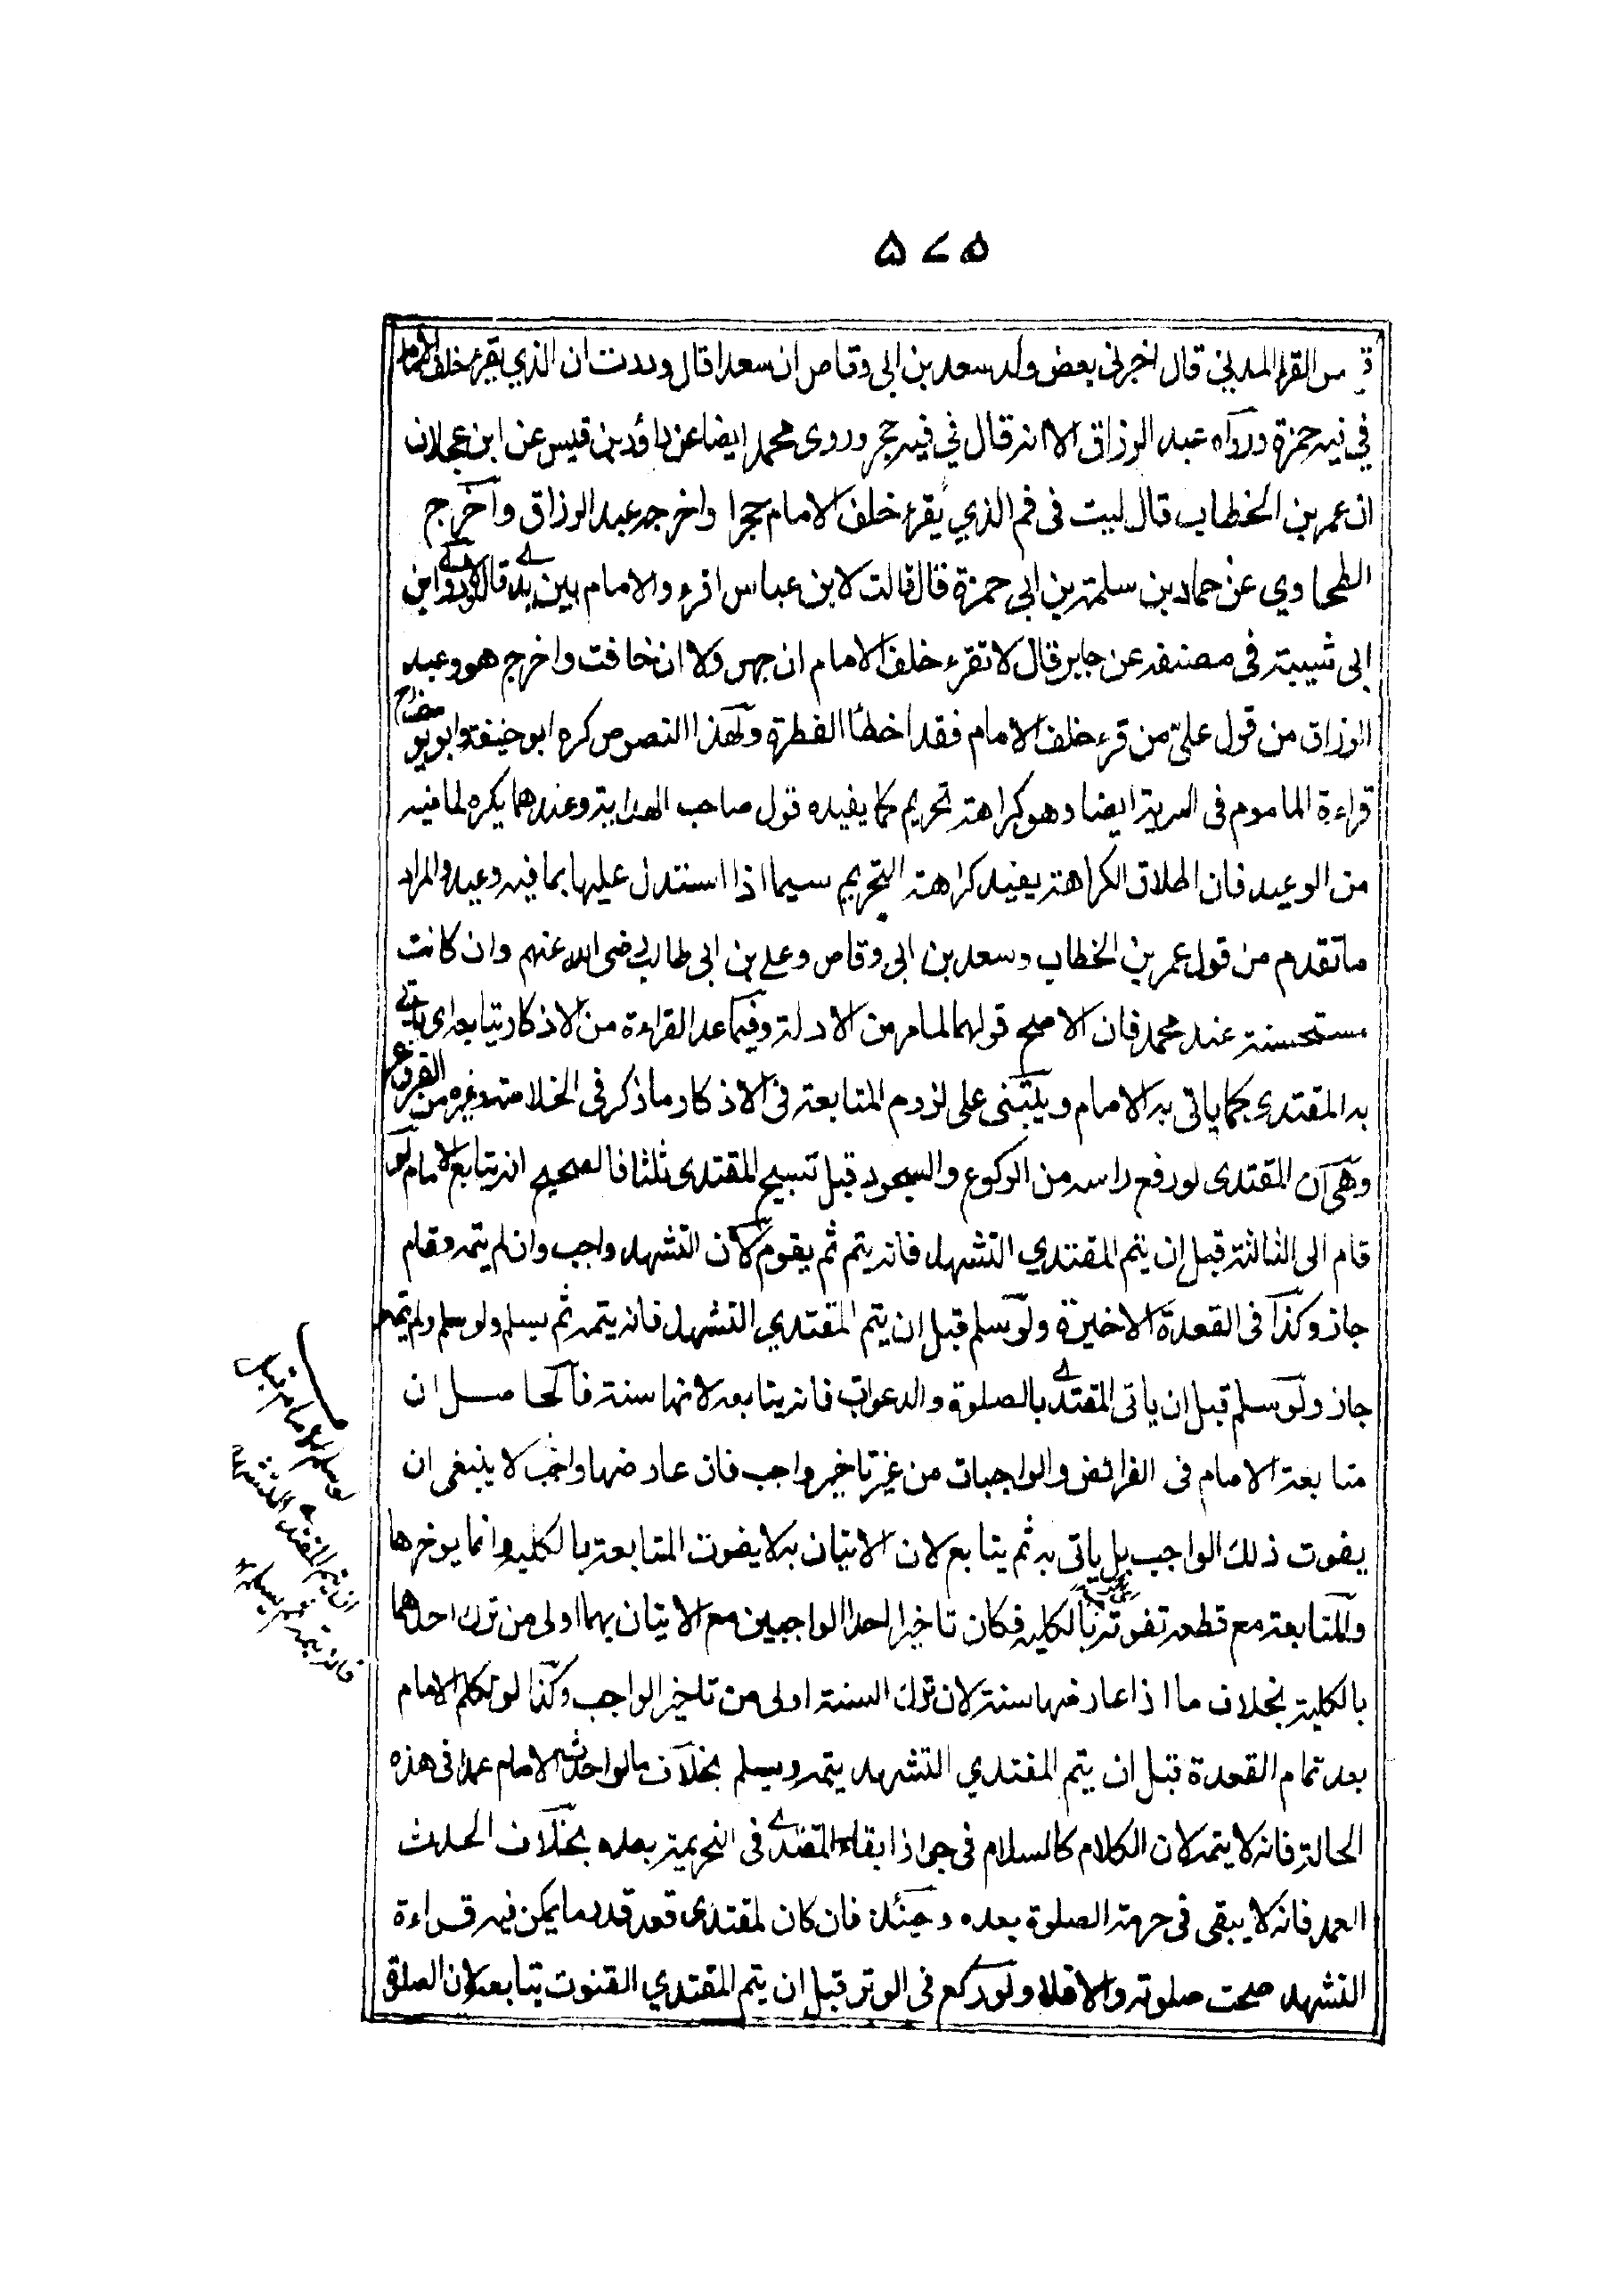 ۵۷۵
قيس القراء المدني قال اخبرني بعض ولد سعد بن ابى وقاص ان سعدا قال وددت ان الذي يقرء خلف الامام
في فيه جمرة ورواه عبد الرزاق الا انه قال في فيه حجر وروى محمد ايضا عن داؤد بن قيس عن ابن عجلان
ان عمر بن الخطاب قال ليت فى فم الذي يقرء خلف الامام حجرا واخرجه عبد الرزاق واخرج
الطحاوي عن حماد بن سلمة بن ابى حمزة قال قالت لابن عباس اقرء والامام بين يدي قال لا وروى ابن
ابى شيبة فى مصنفه عن جابر قال لا تقرء خلف الامام ان جهر ولا ان خافت واخرج هو وعبد
الرزاق من قول علي من قرء خلف الامام فقد اخطأ الفطرة ولهذا النصوص كره ابو حنيفة وابو يو
قراءة الماموم فى السرية ايضا وهو كراهة تحريم كما يفيده قول صاحب الهداية وعندهما يكره لما فيه
من الوعيد فان اطلاق الكراهة يفيد كراهة التحريم سيما اذا استدل عليها بما فيه وعيد والمراد
ما تقدم من قول عمر بن الخطاب وسعد بن ابى وقاص وعلي بن ابى طالب رضى الله عنهم وان كانت
مستحسنة عند محمد فان الاصح قولهما لما مر من الادلة وفيما عد القراءة من الاذكار يتابعه اى ياتي
به المقتدى كما ياتى به الامام ويبتنى على لزوم المتابعة فى الاذكار ما ذكر فى الخلاصة وغيره من الفروع
وهى ان المقتدى لو رفع راسه من الركوع والسجود قبل تسبيح المقتدى ثلثا فالصحيح انه يتابع الامام لو
قام الى الثالثة قبل ان يتم المقتدي التشهد فانه يتم ثم يقوم لان التشهد واجب وان لم يتمه وقام
جاز وكذا فى القعدة الاخيرة ولو سلم قبل ان يتم المقتدي التشهد فانه يتمه ثم يسلم ولو سلم ولم يتمه
جاز ولو سلم قبل ان ياتى المقتدي بالصلوة والدعوات فانه يتابعه لانها سنة فالحاصل ان
متابعة الامام فى الفرائض والواجبات من غير تاخير واجب فان عارضها واجب لا ينبغى ان
يفوت ذلك الواجب بل ياتى به ثم يتابع لان الاتيان به لا يفوت المتابعة بالكلية وانما يوخرها
والمتابعة مع قطعه تفوته بالكلية فكان تاخير احد الواجبين مع الاتيان بهما اولى من ترك احدهما
بالكلية بخلاف ما اذا عارضها سنة لان ترك السنة اولى من تاخير الواجب وكذا لو تكلم الامام
بعد تمام القعدة قبل ان يتم المقتدي التشهد يتمه ويسلم بخلاف ما لو احدث الامام عمدا فى هذه
الحالة فانه لا يتمه لان الكلام كالسلام فى جواز ابقاء المقتدي فى التحريمة بعده بخلاف الحدث
العمد فانه لا يبقى فى حرمة الصلوة بعده وحينئذ فان كان لمقتدى قعد قدر ما يمكن فيه قراءة
التشهد صحت صلوته والا فلا ولو ركع فى الوتر قبل ان يتم المقتدي القنوت يتابعه لان الصلوة
ان يتم المقتدي التشهد
فانه يتمه ثم يسلم